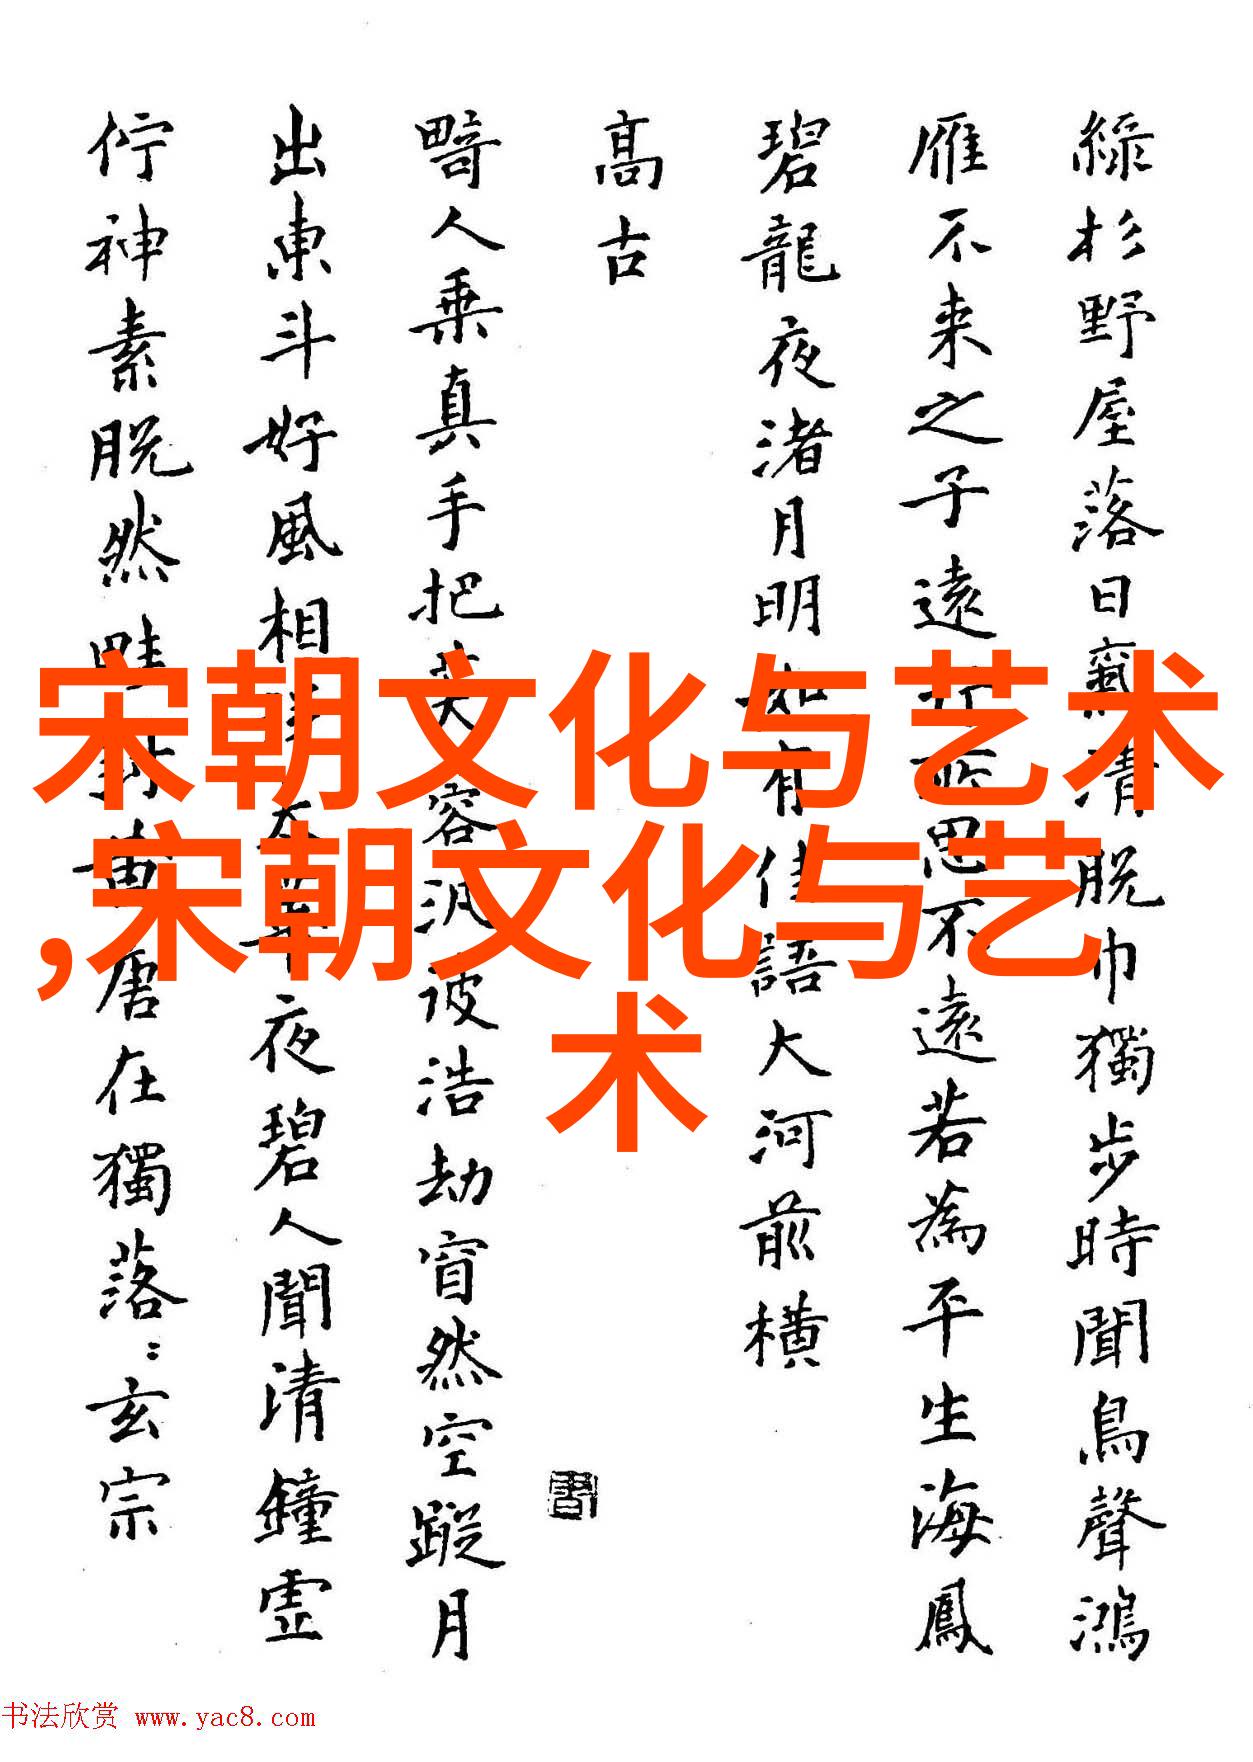 綠杉野屋落日氣清脱巾獨步時聞鳥聲鴻
雁不来之子遠行所思不遠若為平生海鳳
碧龍夜渚月明如有佳語大河前橫
高古
畸人乗真手把芙容汎彼浩劫窅然空蹤月
出東斗好風相從太華夜碧人聞清鐘虚
佇神素脱然畦封黄唐在獨落：玄宗
宋朝文化与艺术
,宋朝文化与艺
术
书法欣赏 www.yac8.com